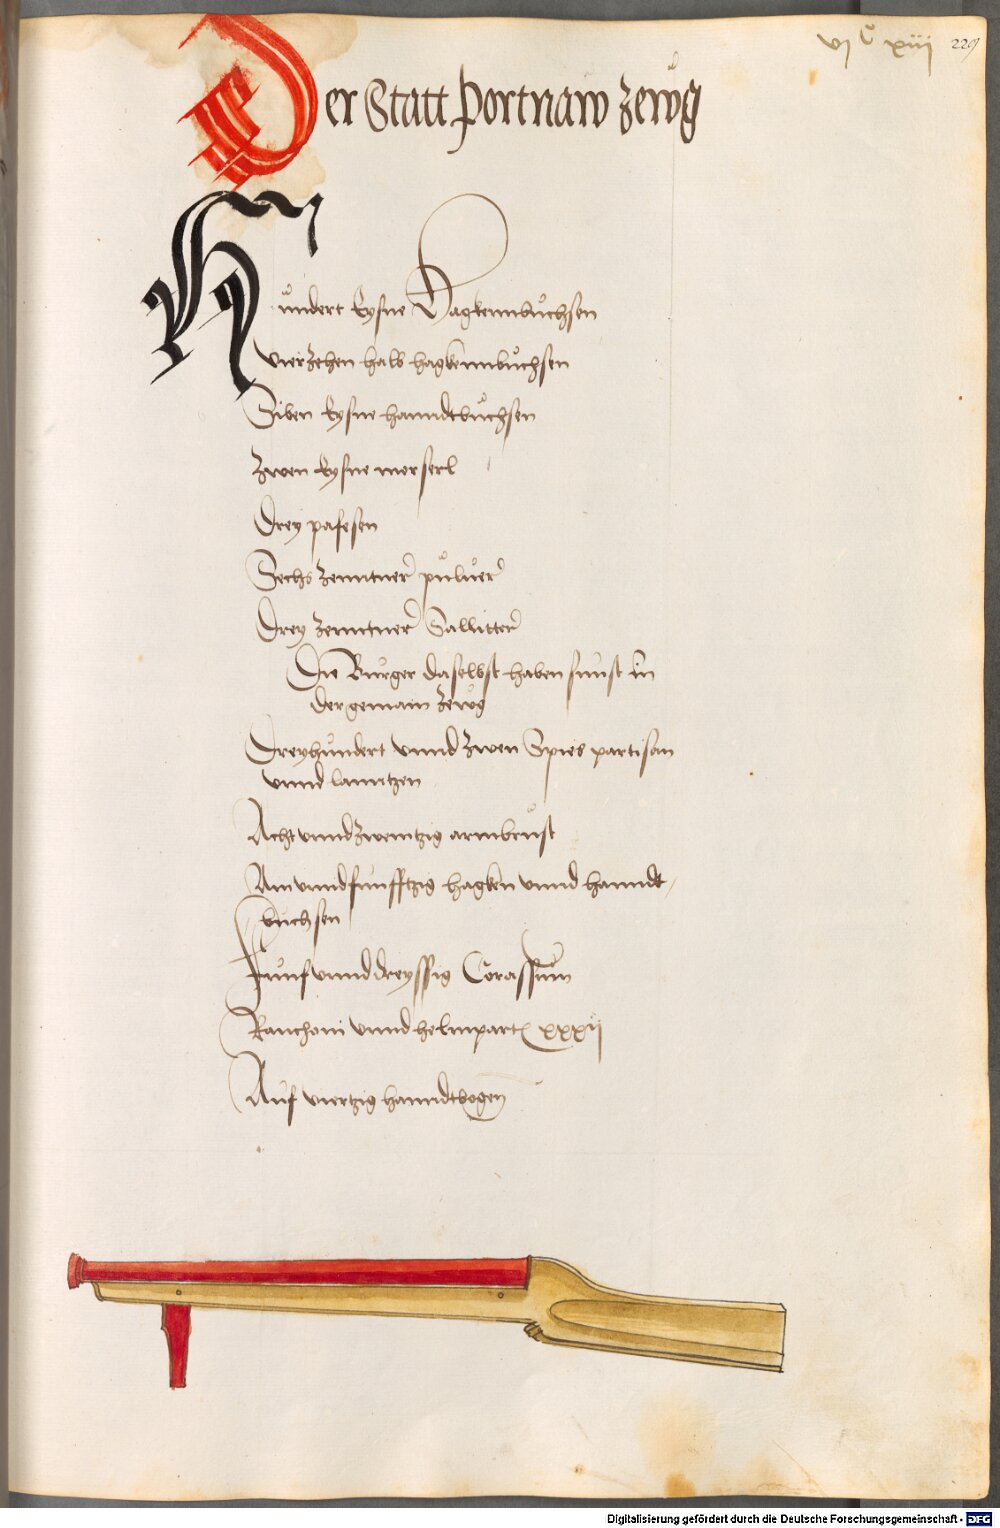 vjC xiii 229
Der Statt Portnaw zewg
Hundert eysne Hagkennbüchsen
vierzehen halb hagkennbüchsen
Siben eysne hanndtbüchsen
Zwen eysne morserl
Drey pafesen
Sechs zenntner pulver
Drey zenntner Salliter
Die Burger daselbst haben sunst in
der gemain zewg
Dreyhundert vnnd zwen Spies partisan
vnnd lanntzen
Acht vnnd zweintzig armbrust
Ain vnnd funfftzig hagken vnnd hanndt
buchsen
Funf vnnd dreyssig Corassin
Ranchoni vnnd helmpartn xxxij
Auf viertzig hanndtbogen
Digitalisierung gefördert durch die Deutsche Forschungsgemeinschaft - DFG